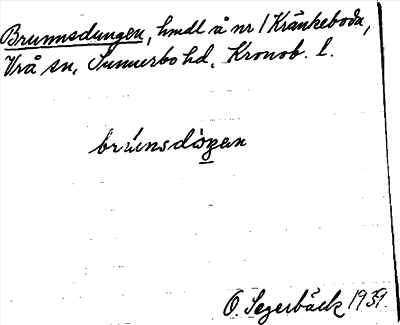 Brunnsdungen, hmdl å nr 1 Kränkeboda,
Vrå sn, Sunnerbo hd, Kronob. l.
O. Segerbäck 1939.